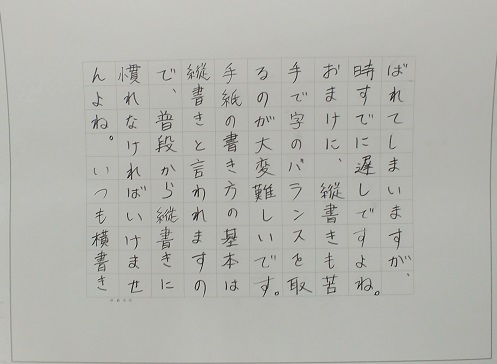 ばれてしまいますが、
時すでに遅しですよね。
おまけに、縦書きも苦
手で字のバランスを取
るのが大変難しいです。
手紙の書き方の基本は
縦書きと言われますの
で、普段から縦書きに
慣れなければいけませ
んよね。いつも横書き